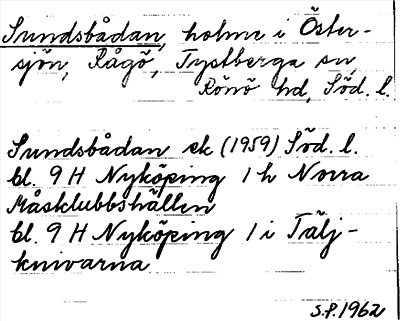 Sundsbådan, holme i Öster-
sjön, Rågö, Tystberga sn,
Rönö hd, Söd. l.
Sundsbådan ek (1959) Söd. l.
bl. 9 H Nyköping 1 h Norra
Måsklubbshällen
bl. 9 H Nyköping 1 i Tälj-
knivarna
S.P. 1962